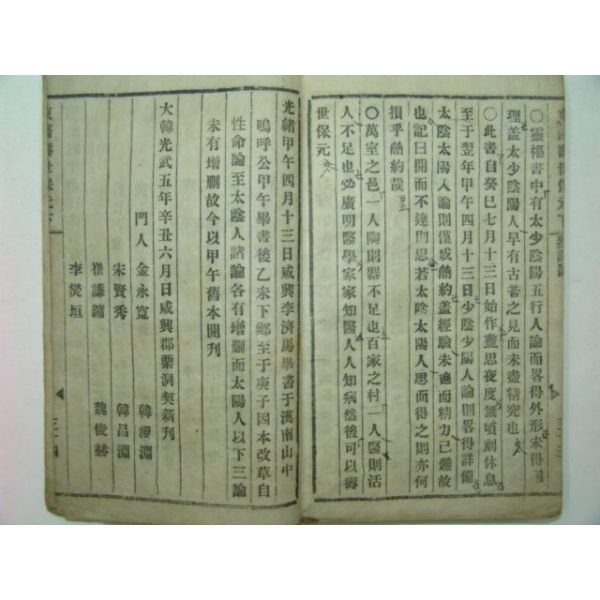 ○靈樞書中有太少陰陽五行人論而畧得外形未得臟
理盖太少陰陽人早有古昔之見而未盡精究也
○此書自癸巳七月十三日始作晝思夜度無頃刻休息
至于翌年甲午四月十三日少陰少陽人論則畧得詳備
太陰太陽人論則僅成簡約盖經驗未遍而精力已憊故
也記曰開而不達則思若太陰太陽人思而得之則亦何
損乎簡約哉
○萬室之邑一人陶則器不足也百家之村一人醫則活
人不足也必廣明醫學家家知醫人人知病然後可以壽
世保元
光緖甲午四月十三日咸興李濟馬畢書于漢南山中
嗚呼公甲午畢書後乙未下鄕至于庚子因本改草自
性命論至太陰人諸論各有增删而太陽人以下三論
未有增删故今以甲午舊本開刊
大韓光武五年辛丑六月日咸興郡栗洞契新刊
門人 金永寬 韓稷淵
宋賢秀 韓昌淵
崔謙鏞 魏俊赫
李燮垣
東醫壽世保元下 三十四